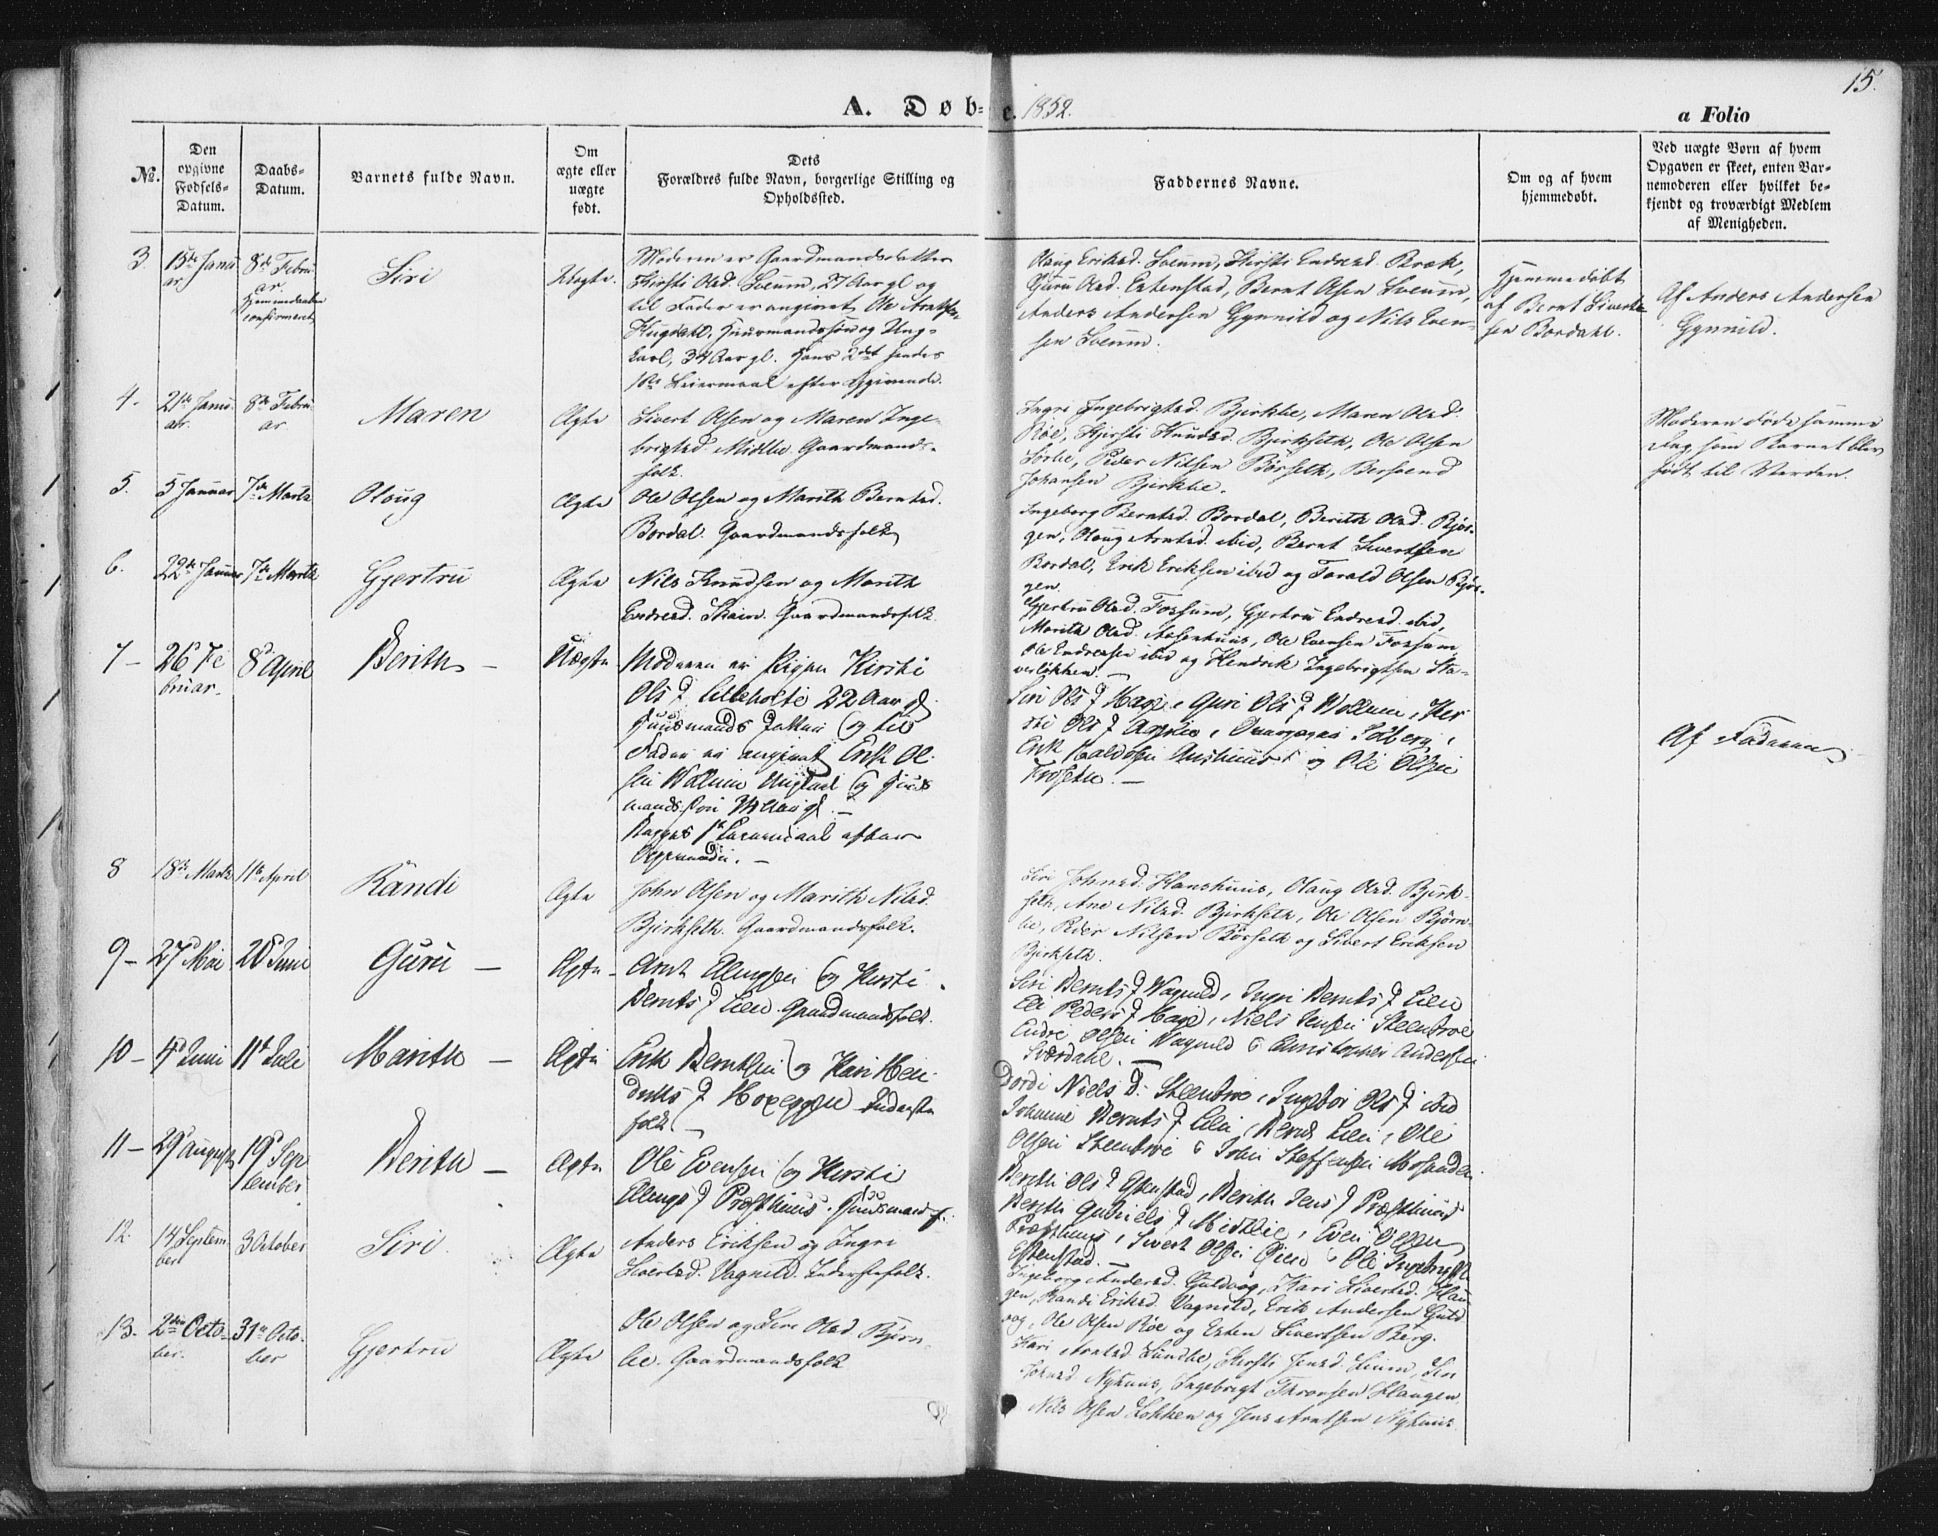 15.
A. Døb-
e. 1852.
a Folio
No.
Den
opgivne
Fødsels-
Datum.
Daabs-
Datum.
Barnets fulde Navn.
Om
ægte eller
uægte
født.
Dets
Forældres fulde Navn, borgerlige Stilling og
Opholdssted.
Faddernes Navne.
Om og af hvem
hjemmedøbt.
Ved uægte Børn af hvem
Opgaven er skeet, enten Bar-
nemoderen eller hvilket be-
kjendt og troværdigt Medlem
af Menigheden.
3.
15de Janu
ar.
8de Febru
ar.
Hjemmedaaben
confirmeret
Siri
Uægte.
Moderen er Gaardmandsdatter
Kirsti Olsd. Soeum, 27 Aar gl og
til Fader er angivet Ole Arntsen
Hugdahl, Huusmandssøn og Ung-
karl, 34 Aar gl. Hans 2det hendes
1ste Leiermaal efter Opgivende.
Olaug Eriksd. Soeum, Kirsti Endresd. Bræk,
Guru Olsd. Estenstad, Bernt Olsen Soeum,
Anders Andersen Gynnild og Nils Even-
sen Soeum.
Hjemmedøbt
af Bernt Siverts-
sen Bordahl.
Af Anders Andersen
Gynnild.
4.
21de Janu-
ar.
8de Febru-
ar.
Maren
Ægte
Sivert Olsen og Maren Inge-
brigtsd. Midtlie Gaardmands-
folk.
Ingri Ingebrigtsd. Bjerklie, Maren Olsd.
Røe, Kjersti Knudsd. Bjerkseth, Ole Olsen
Sørlie, Peder Nilsen Børseth, Bersvend
Johansen Bjerklie.
Moderen døde samme
Dag som Barnet blev
født til Verden.
5.
5 Januar
7de Marts
Olaug
Ægte
Ole Olsen og Marith Berntsd.
Bordal. Gaardmandsfolk
Ingeborg Berntsd. Bordal, Berith Olsd. Bjør-
gen, Olaug Arntsd. ibid, Bernt Sivertsen
Bordal, Erik Eriksen ibid og Tarald Olsen Bjør-
gen.
6.
22de Januar
7de Marts
Gjertru
Ægte
Nils Knudsen og Marith
Endresd. Skain. Gaardmandsfolk
Gjertru Olsd. Fossum, Gjertru Endresd. ibid,
Marith Olsd. Aasenhuus, Ole Evensen Fossum,
Ole Endresen ibid og Hendrik Ingebrigtsen Sta-
verløkken.
7 -
26d Fe
bruar.
8d April
Berith -
Uægte
Moderen er Pigen Kirsti
Ols D Lilleholte 22 Aar gl
Huusmands Datter og til
Fader er angivet Erik Ol-
sen Wollum Ungkarl og Huus
mands søn
Begges 1ste Leiermaal efter
Opgivende. -
Siri Ols D Hage, Guri Ols D Wollum, Kir
sti Ols D
Erik og Ole Olsen
Af Faderen
8
18de Marts
11te April
Randi
Ægte
John Olsen og Marith Nilsd.
Bjerkseth. Gaardmandsfolk.
Siri Johnsd. Hanshuus, Olaug Olsd. Bjerk-
seth, Ane Nilsd. Bjerkseth, Ole Olsen Bjørn-
lie, Peder Nilsen Børseth og Sivert Eriksen
Bjerkseth.
9 -
27d Mai
20d Juni
Guru -
Ægte -
Arnt Ellingsen og Kirsti
Bernts D Lien Gaardmandsfolk.
Siri Bernts D Vagnild, Ingri Bernts D Lien
Eli Peders D Hage, Niels Jensen Steenbroe
Endre Olsen Vagnild & Christopher Andersen
Sværdahl. -
10 -
4d Juni
11t Juli
Marith -
Ægte
Erik Berntsen og Kari Hen-
driks D Haxeggen Inderste
folk -
Dordi Niels D. Steenbroe, Ingebor Ols D ibid
Johanne Bernts D Lien, Bernt Lien, Ole
Olsen Steenbroe & John Steffensen
11 -
29d august
19d Sep
tember
Berith -
Ægte
Ole Evensen og Kirsti
Ellings D Præsthuus. Huusmandsf.
Berith Ols D Estenstad, Berith Jens D Præsthuus
Berith Gabriels D Midtlie, Even
Præsthuus, Sivert Olsen Øien & Ole Ingebrigtsen
Estenstad. -
12.
14 Septem-
ber
3 October
Siri
Ægte
Anders Eriksen og Ingri
Sivertsd. Vagnild. Inderstefolk.
Ingeborg Andersd. Guldvog, Kari Sivertsd. Hau-
gen, Randi Eriksd. Vagnild, Erik Andersen Guld
vog, Ole Olsen Røe og Esten Sivertsen Berg.
13.
2den Octo-
ber.
31te Octo-
ber
Gjertru
Ægte
Ole Olsen og Siri Olsd. Bjørn-
lie. Gaardmandsfolk
Kari Arntsd. Lundlie, Kirsti Jensd. Lium, Siri
Johnsd Nyhuus, Ingebrigt Thronsen Haugen,
Nils Olsen Løkken og Jens Arntsen Nyhuus.